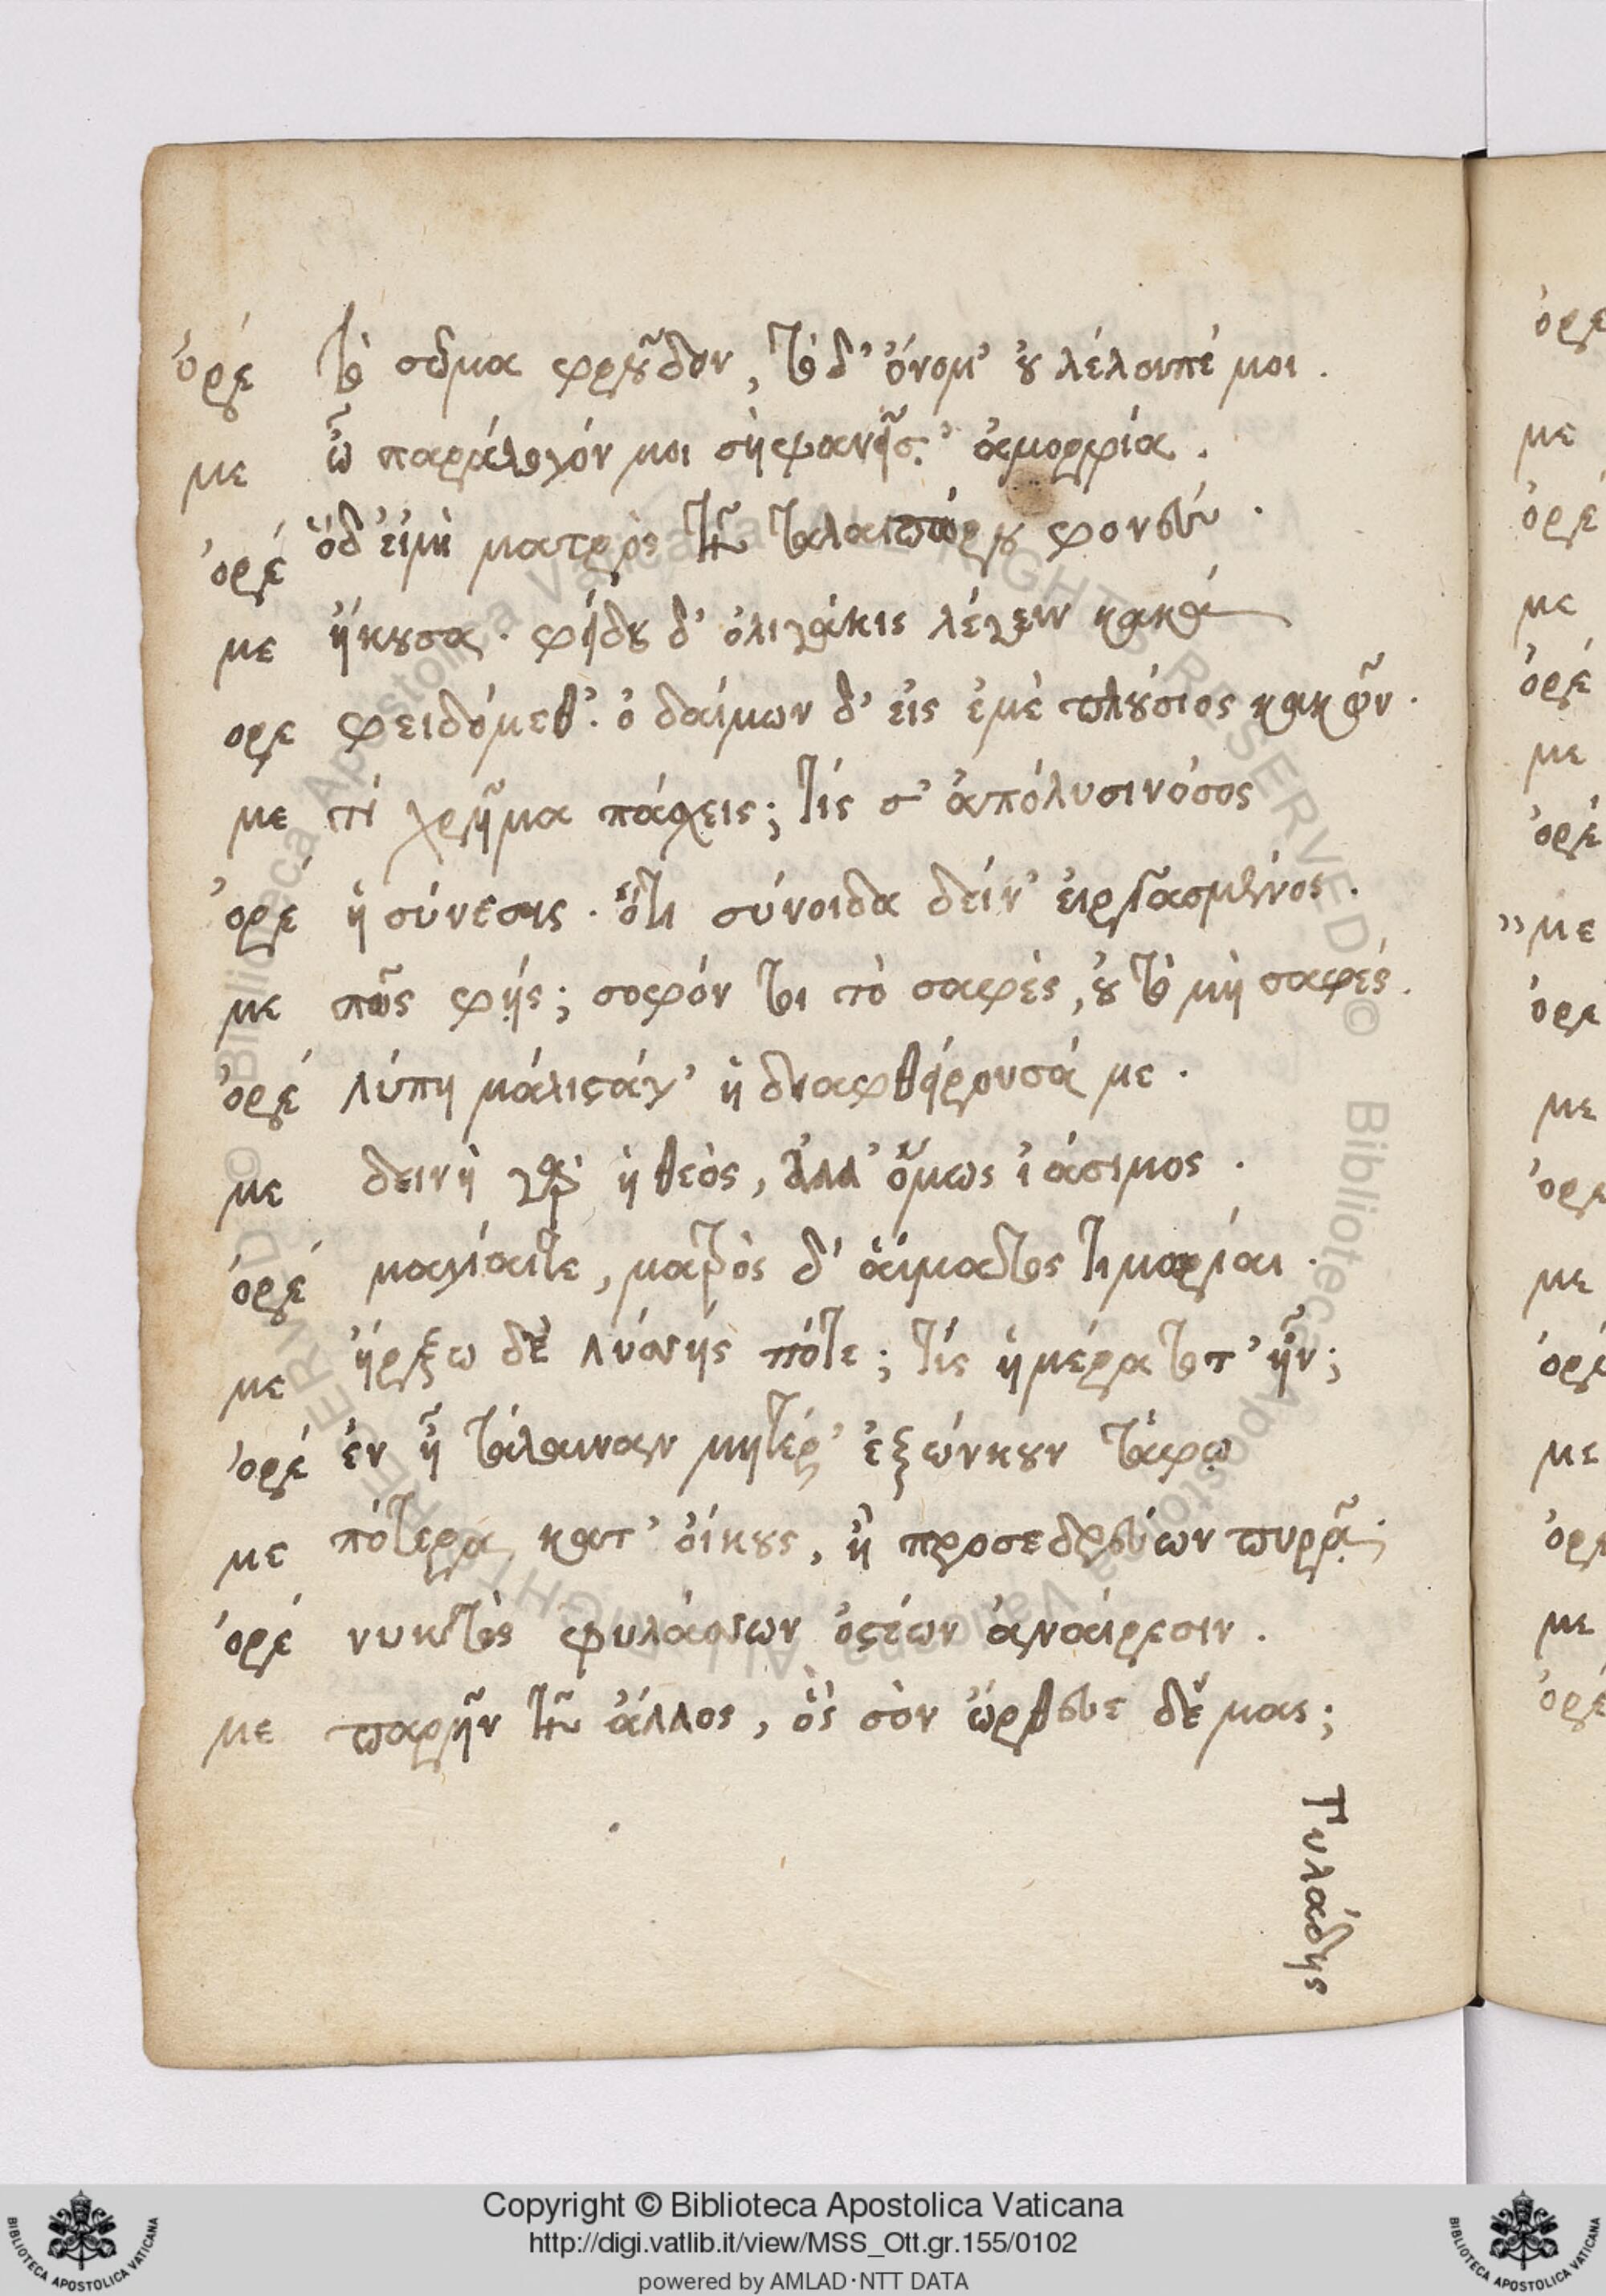 ὀρέ τὸ σῶμα φροῦδον, τὸ δ' ὄνομ' οὐ λέλοιπέ μοι.
με ὦ παράλογόν μοι σὴ φανῆσ' ἀμορφία.
ὀρέ ὅδ' εἰμὶ ματρὸς τῆς ταλαιπώρου φονεύς.
με ἤκουσα. φείδου δ' ὀλιγάκις λέγειν κακά
ορε φειδόμεθ'. ὁ δαίμων δ' εἰς ἐμὲ πλούσιος κακῶν.
με τί χρῆμα πάσχεις; τίς σ' ἀπόλυσινόσος
ὀρέ ἡ σύνεσις. ὅτι σύνοιδα δείν' εἰργασμένος.
με πῶς φής; σοφόν τι τὸ σαφὲς, οὐ τὸ μὴ σαφές.
ὀρέ λύπη μάλιστάγ' ἡ διαφθείρουσά με.
με δεινὴ γὰρ ἡ θεὸς, ἀλλ' ὅμως ἰάσιμος.
ὀρέ μανίαιτε, ματρὸς δ' αἵματος τιμωρίαι.
με ἤρξω δὲ λύσσης πότε; τίς ἡμέρα τότ' ἦν;
ὀρέ ἐν ᾗ τάλαιναν μητέρ' ἐξώγκουν τάφῳ
με πότερα κατ' οἴκους, ἢ προσεδρεύων πυρᾷ;
ὀρέ νυκτὸς φυλάσσων ὀστέων ἀναίρεσιν.
με παρῆν τις ἄλλος, ὃς σὸν ὤρθευε δέμας;
Πυλάδης
ὀρε
με
ὀρέ
με
ὀρέ
με
ὀρέ
„με
ὀρέ
με
ὀρε
με
ὀρέ
με
ὀρέ
με
ὀρέ
© Biblioteca Apostolica Vaticana ALL RIGHTS RESERVED
Copyright © Biblioteca Apostolica Vaticana
http://digi.vatlib.it/view/MSS_Ott.gr.155/0102
powered by AMLAD·NTT DATA
BIBLIOTECA APOSTOLICA VATICANA
BIBLIOTECA APOSTOLICA VATICANA